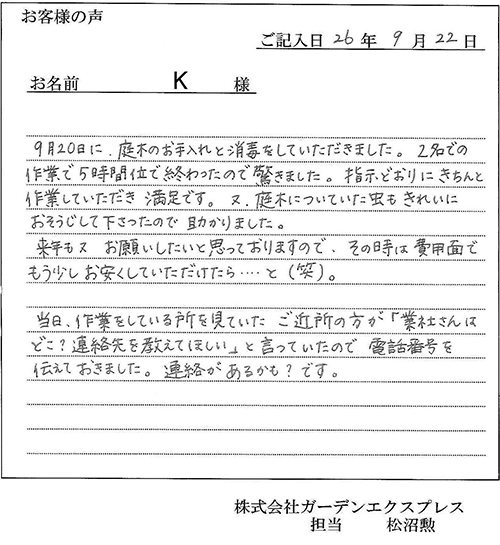 お客様の声
ご記入日 26 年 9 月 22 日
お名前 K 様
9月20日に、庭木のお手入れと消毒をしていただきました。2名での
作業で5時間位で終わったので驚きました。指示どおりにきちんと
作業していただき 満足です。又、庭木についていた虫もきれいに
おそうじして下さったので 助かりました。
来年も又 お願いしたいと思っておりますので、その時は費用面で
もう少しお安くしていただけたら‥‥と(笑)。
当日、作業をしている所を見ていた ご近所の方が「業社さんは
どこ?連絡先を教えてほしい」と言っていたので 電話番号を
伝えておきました。連絡があるかも?です。
株式会社ガーデンエクスプレス
担当 松沼勲